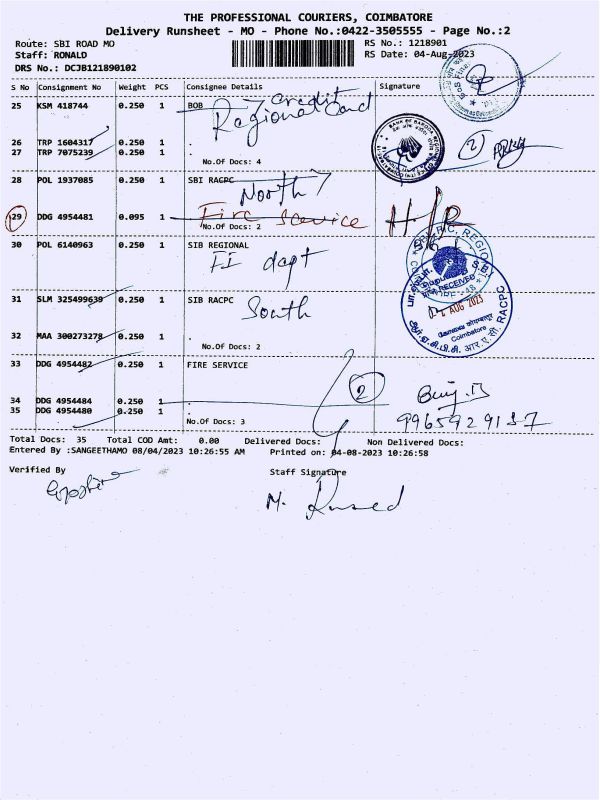 THE PROFESSIONAL COURIERS, COIMBATORE
Delivery Runsheet - MO - Phone No.:0422-3505555 - Page No.:2
Route: SBI ROAD MO
RS No.: 1218901
Staff: RONALD
RS Date: 04-Aug-2023
DRS No.: DCJB121890102
S No Consignment No Weight PCS Consignee Details Signature
25 KSM 418744 0.250 1 BOB
Credit Card
Regional
26 TRP 1604317 0.250 1 .
27 TRP 7075239 0.250 1 .
No.Of Docs: 4
2
28 POL 1937085 0.250 1 SBI RACPC
North
29 DDG 4954481 0.095 1
Fire Service
No.Of Docs: 2
30 POL 6140963 0.250 1 SIB REGIONAL
FI dept
31 SLM 325499639 0.250 1 SIB RACPC
South
RECEIVED
AUG 2023
Coimbatore
RACPC
32 MAA 300273278 0.250 1 .
No.Of Docs: 2
33 DDG 4954482 0.250 1 FIRE SERVICE
2
34 DDG 4954484 0.250 1 .
35 DDG 4954480 0.250 1 .
No.Of Docs: 3
9965929137
Total Docs: 35 Total COD Amt: 0.00 Delivered Docs: Non Delivered Docs:
Entered By :SANGEETHAMO 08/04/2023 10:26:55 AM Printed on: 04-08-2023 10:26:58
Verified By Staff Signature